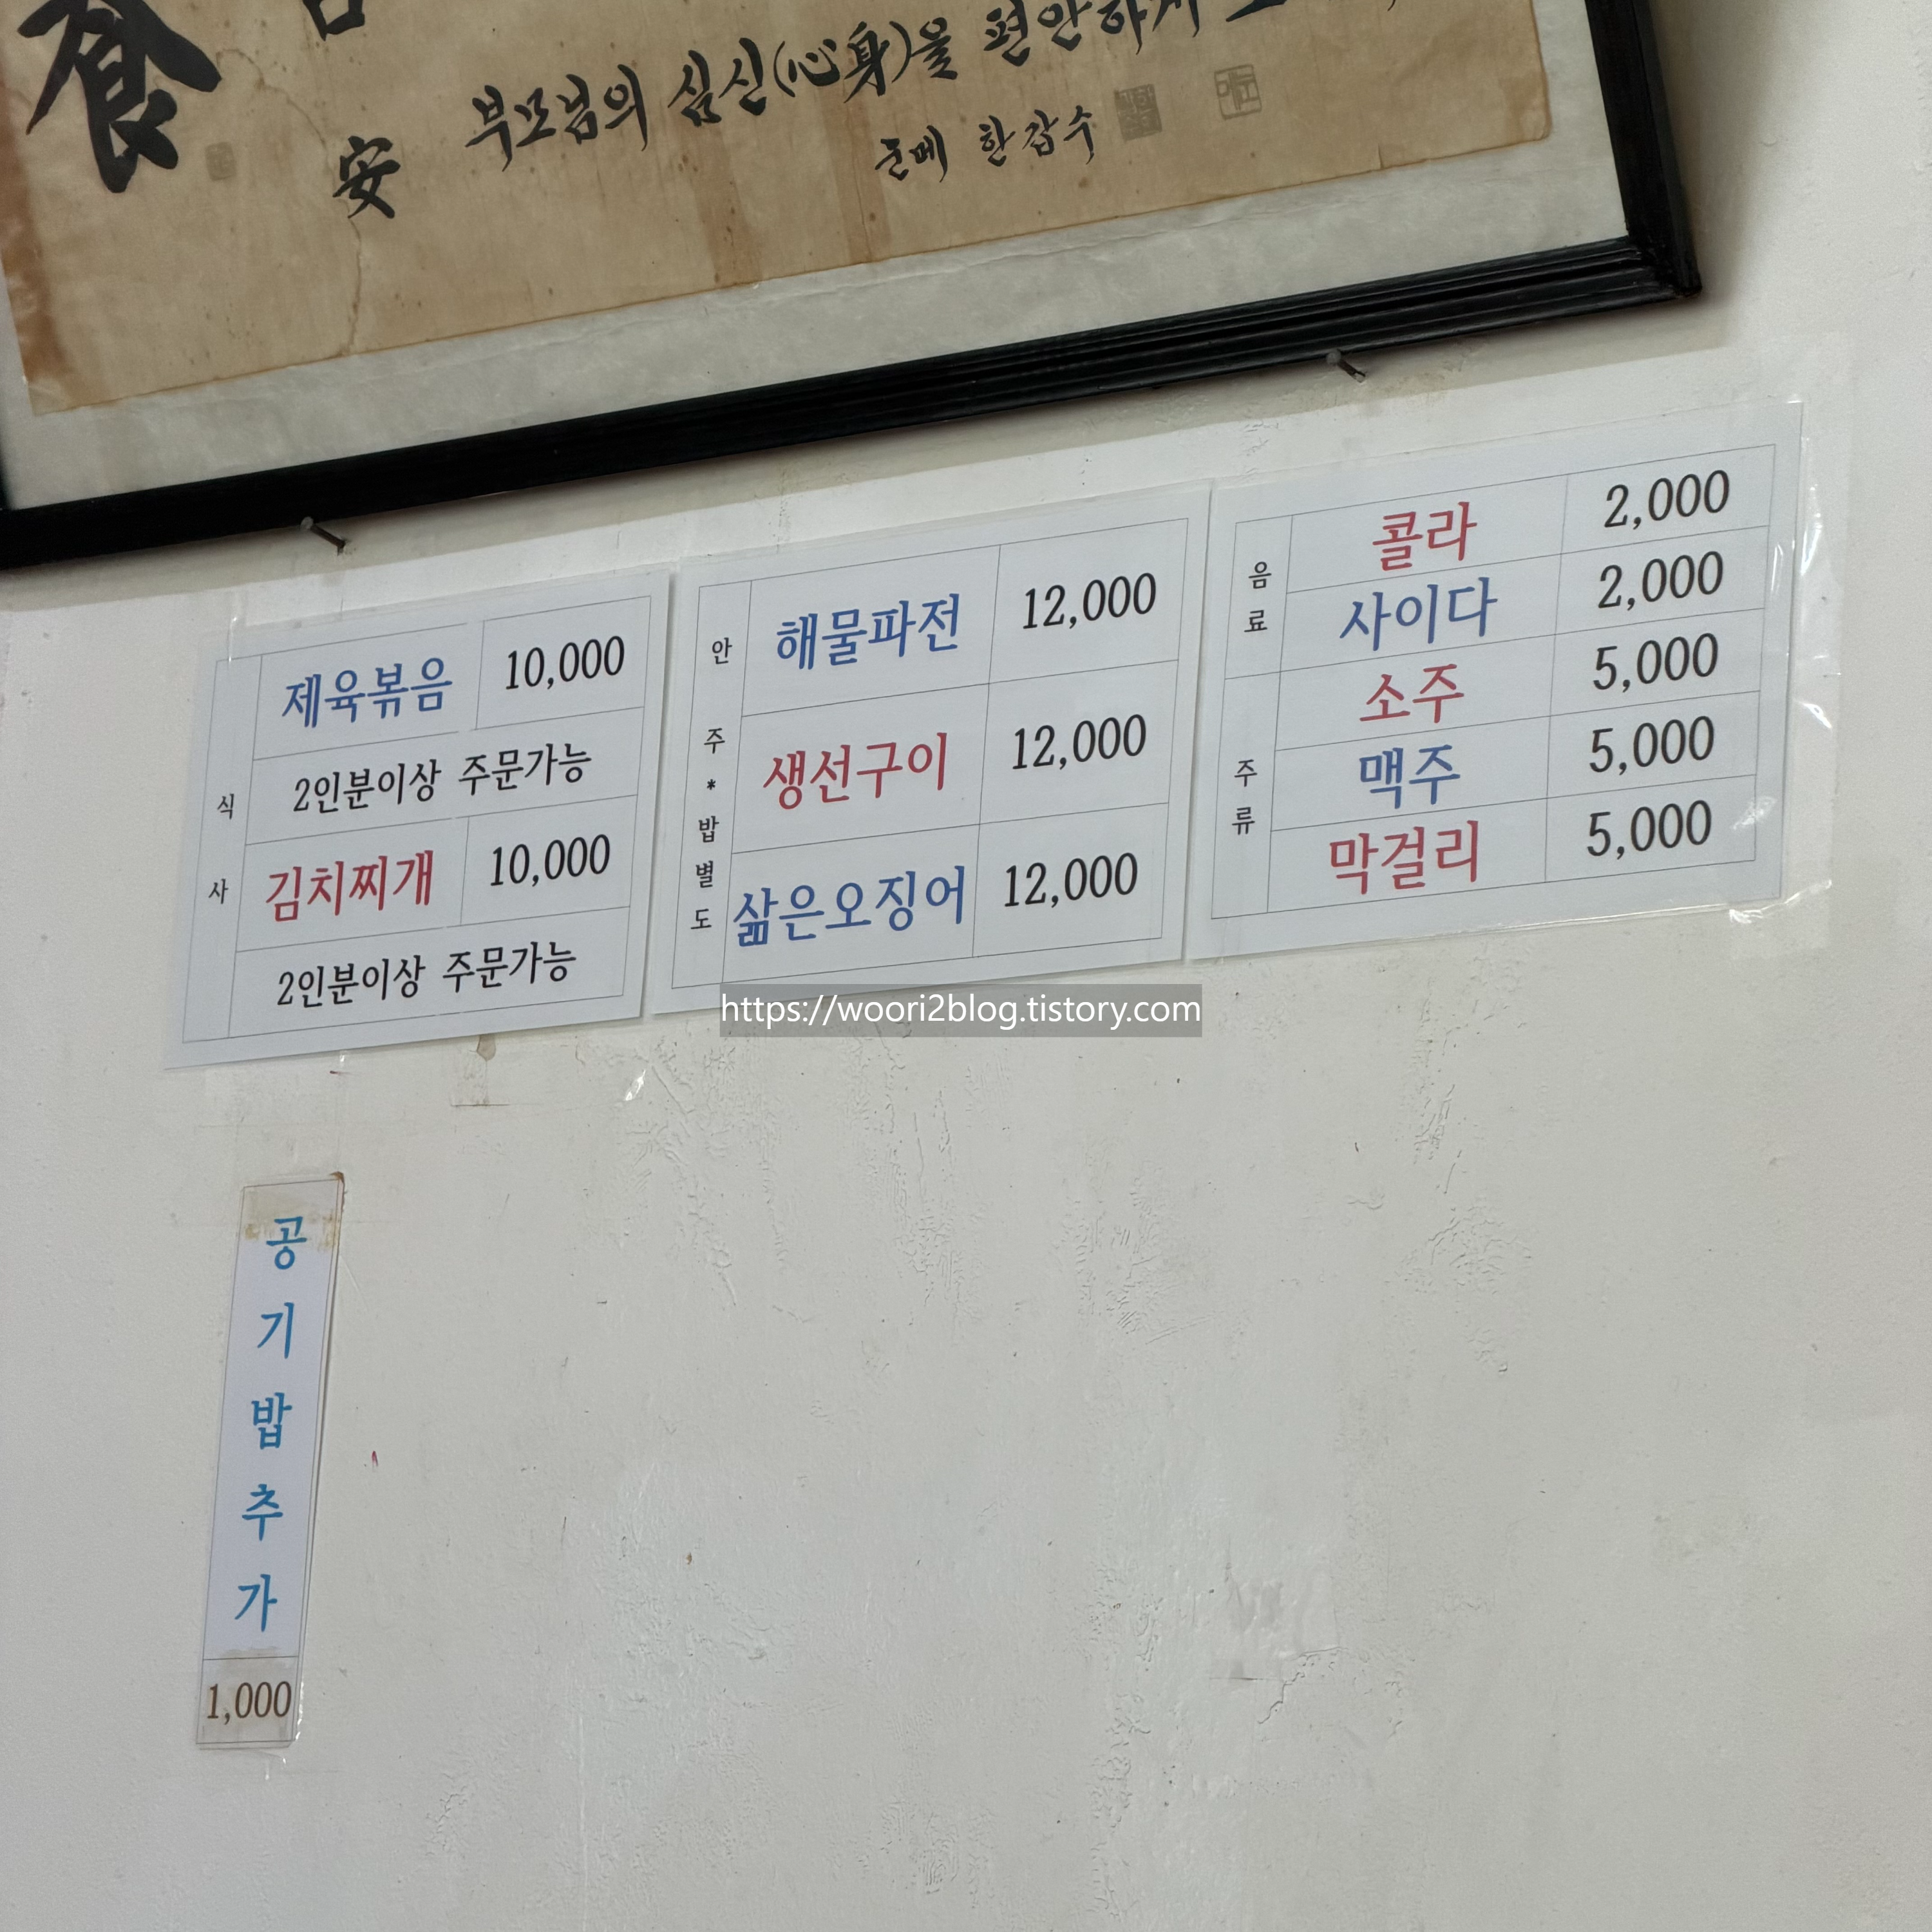 食
安
부모님의 심신(心身)을 편안하게
눈메 한갑수
식사
제육볶음 10,000
2인분이상 주문가능
김치찌개 10,000
2인분이상 주문가능
안주*밥별도
해물파전 12,000
생선구이 12,000
삶은오징어 12,000
음료
콜라 2,000
사이다 2,000
주류
소주 5,000
맥주 5,000
막걸리 5,000
https://woori2blog.tistory.com
공기밥추가
1,000